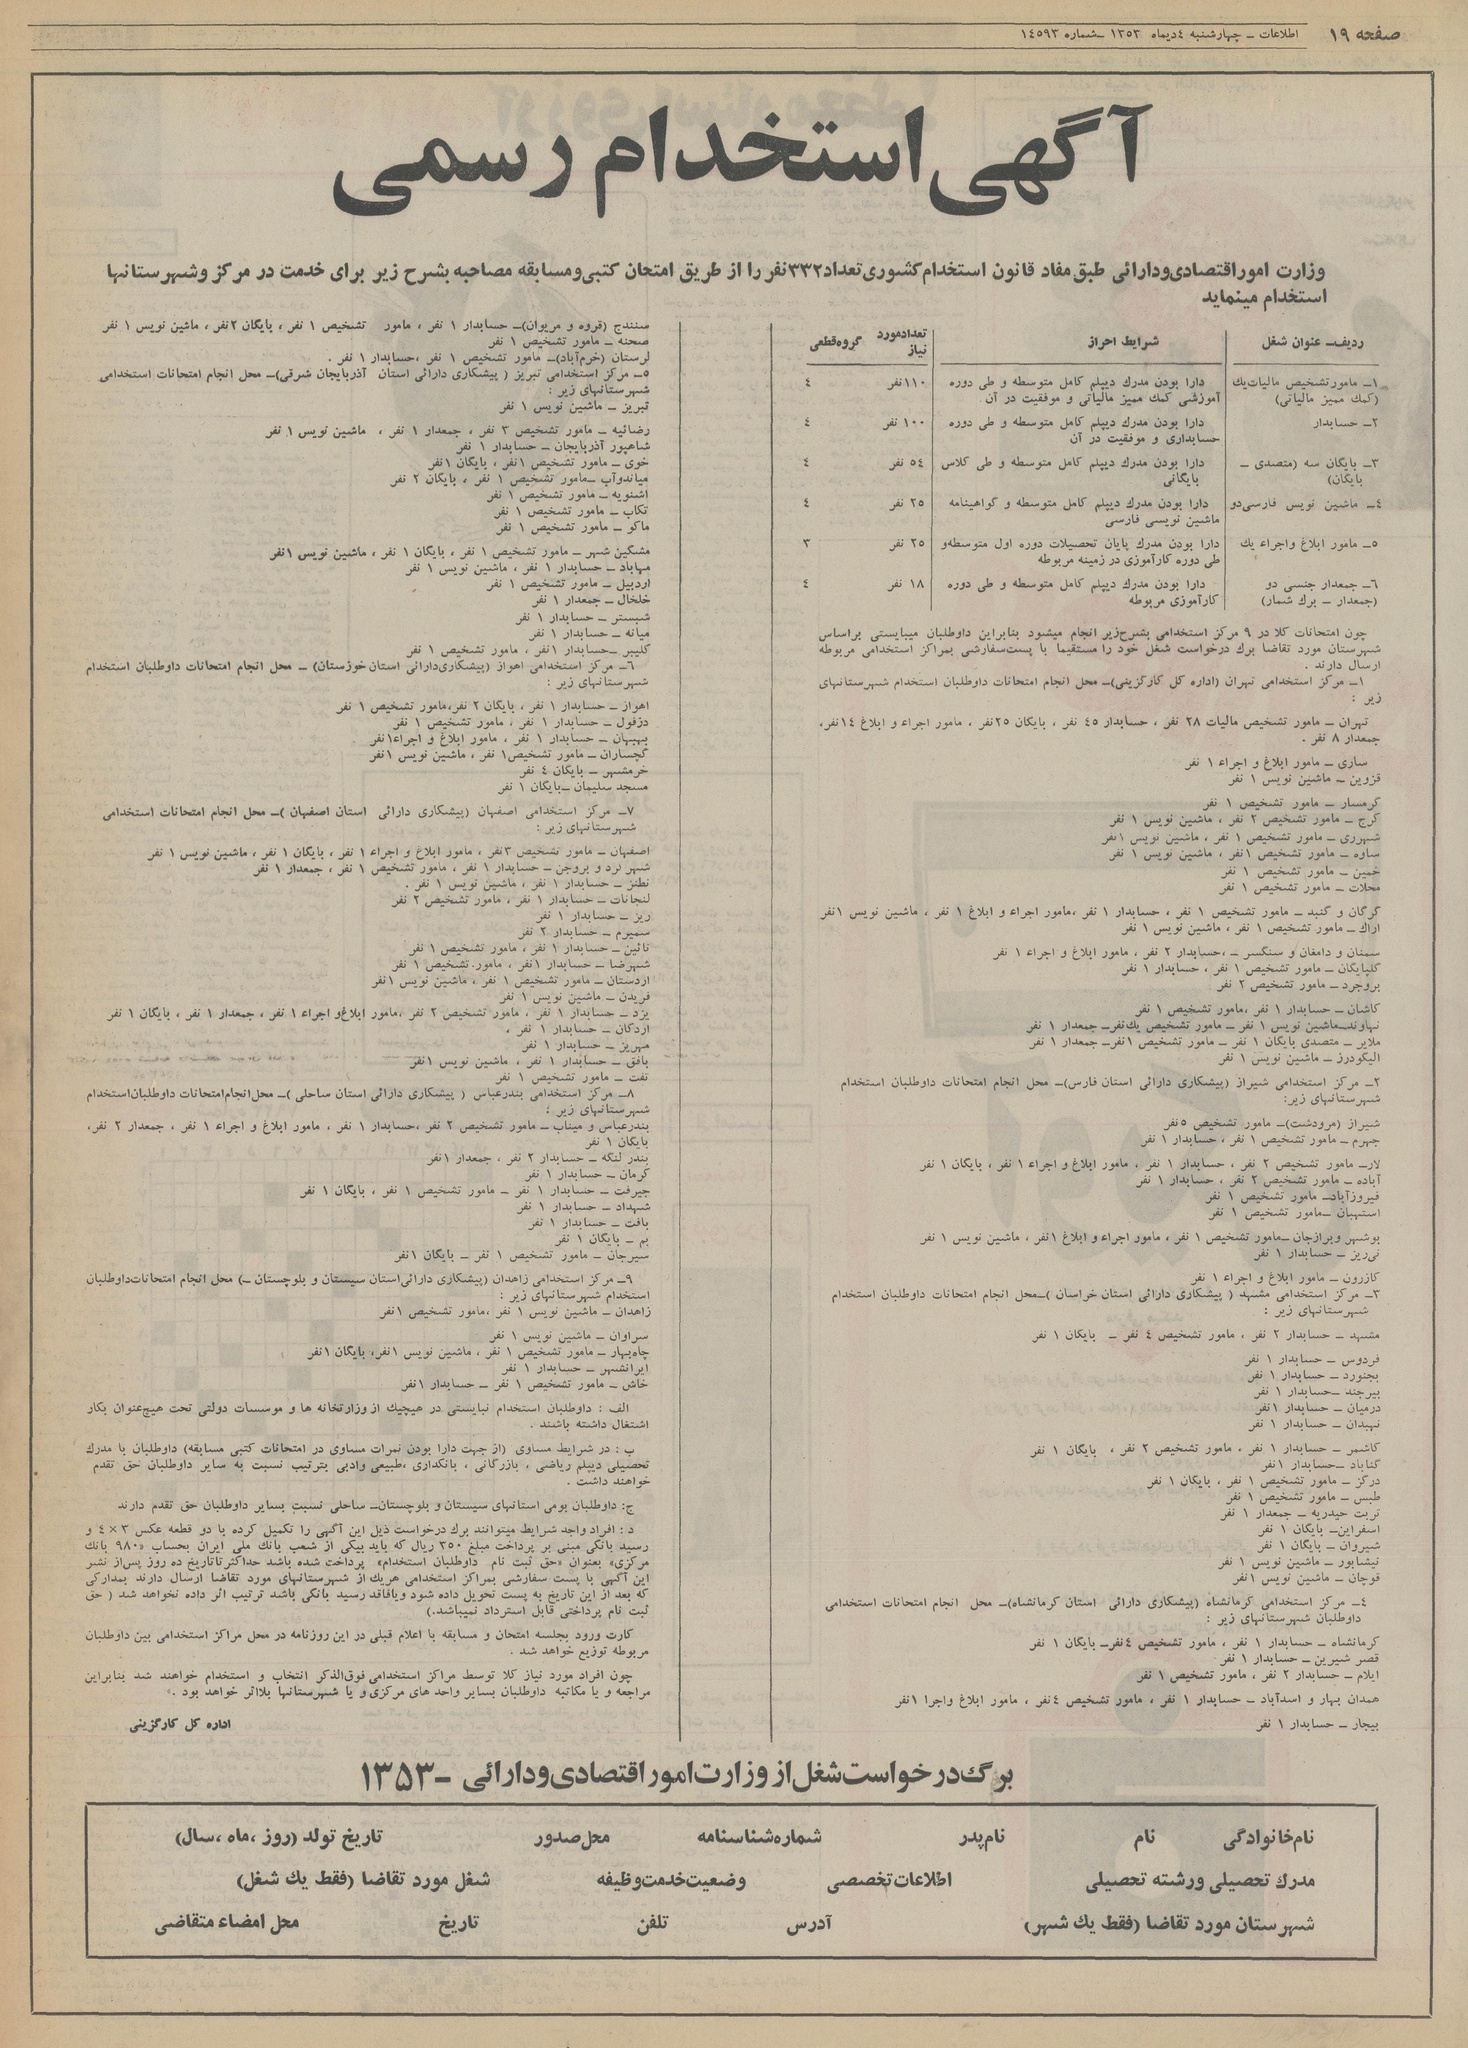 صفحه ۱۹
اطلاعات ـ چهارشنبه ٤دیماه ۱۳۵۳ ـشماره ۱٤۵۹۳
آگهی استخدام رسمی
وزارت اموراقتصادی‌ودارائی طبق مفاد قانون استخدام‌کشوری‌تعداد۳۳۲نفر را از طریق امتحان کتبی‌ومسابقه مصاحبه بشرح زیر برای خدمت در مرکز وشهرستانها
استخدام مینماید
ردیف‌ـ عنوان شغل
شرایط احراز
تعدادمورد
نیاز
گروه‌قطعی
۱ـ مامورتشخیص مالیات‌یك
(کمك ممیز مالیاتی)
دارا بودن مدرك دیپلم کامل متوسطه و طی دوره
آموزشی کمك ممیز مالیاتی و موفقیت در آن
۱۱۰نفر
٤
۲ـ حسابدار
دارا بودن مدرك دیپلم کامل متوسطه و طی دوره
حسابداری و موفقیت در آن
۱۰۰ نفر
٤
۳ـ بایگان سه (متصدی ـ
بایگان)
دارا بودن مدرك دیپلم کامل متوسطه و طی کلاس
بایگانی
۵٤ نفر
٤
٤ـ ماشین نویس فارسی‌دو
دارا بودن مدرك دیپلم کامل متوسطه و گواهینامه
ماشین نویسی فارسی
۲۵ نفر
٤
۵ـ مامور ابلاغ واجراء یك
دارا بودن مدرك پایان تحصیلات دوره اول متوسطه‌و
طی دوره کارآموزی در زمینه مربوطه
۲۵ نفر
۳
۶ـ جمعدار جنسی دو
(جمعدار ـ برك شمار)
دارا بودن مدرك دیپلم کامل متوسطه و طی دوره
کارآموزی مربوطه
۱۸ نفر
٤
چون امتحانات کلا در ۹ مرکز استخدامی بشرح‌زیر انجام میشود بنابراین داوطلبان میبایستی براساس
شهرستان مورد تقاضا برك درخواست شغل خود را مستقیما با پست‌سفارشی بمراکز استخدامی مربوطه
ارسال دارند .
۱ـ مرکز استخدامی تهران (اداره کل کارگزینی)ـ محل انجام امتحانات داوطلبان استخدام شهرستانهای
زیر :
تهران ـ مامور تشخیص مالیات ۲۸ نفر ، حسابدار ٤۵ نفر ، بایگان ۲۵نفر ، مامور اجراء و ابلاغ ۱٤نفر،
جمعدار ۸ نفر .
ساری ـ مامور ابلاغ و اجراء ۱ نفر
قزوین ـ ماشین نویس ۱ نفر
گرمسار ـ مامور تشخیص ۱ نفر
کرج ـ مامور تشخیص ۲ نفر ، ماشین نویس ۱ نفر
شهرری ـ مامور تشخیص ۱ نفر ، ماشین نویس ۱نفر
ساوه ـ مامور تشخیص ۱نفر ، ماشین نویس ۱ نفر
خمین ـ مامور تشخیص ۱ نفر
محلات ـ مامور تشخیص ۱ نفر
گرگان و گنبد ـ مامور تشخیص ۱ نفر ، حسابدار ۱ نفر ،مامور اجراء و ابلاغ ۱ نفر ، ماشین نویس ۱نفر
اراك ـ مامور تشخیص ۱ نفر ، ماشین نویس ۱ نفر
سمنان و دامغان و سنگسر ـ ،حسابدار ۲ نفر ، مامور ابلاغ و اجراء ۱ نفر
گلپایگان ـ مامور تشخیص ۱ نفر ، حسابدار ۱ نفر
بروجرد ـ مامور تشخیص ۲ نفر
کاشان ـ حسابدار ۱ نفر ،مامور تشخیص ۱ نفر
نهاوندـماشین نویس ۱ نفر ـ مامور تشخیص یك‌نفرـ جمعدار ۱ نفر
ملایر ـ متصدی بایگان ۱ نفر ـ مامور تشخیص ۱نفرـ جمعدار ۱ نفر
الیگودرز ـ ماشین نویس ۱ نفر
۲ـ مرکز استخدامی شیراز (پیشکاری دارائی استان فارس)ـ محل انجام امتحانات داوطلبان استخدام
شهرستانهای زیر:
شیراز (مرودشت)ـ مامور تشخیص ۵نفر
جهرم ـ مامور تشخیص ۱ نفر ، حسابدار ۱ نفر
لارـ مامور تشخیص ۲ نفر ، حسابدار ۱ نفر ، مامور ابلاغ و اجراء ۱ نفر ، بایگان ۱ نفر
آباده ـ مامور تشخیص ۲ نفر ، حسابدار ۱ نفر
فیروزآبادـ مامور تشخیص ۱ نفر
استهبان ـمامور تشخیص ۱ نفر
بوشهر وبرازجان ـمامور تشخیص ۱ نفر ، مامور اجراء و ابلاغ ۱نفر ، ماشین نویس ۱ نفر
نی‌ریز ـ حسابدار ۱ نفر
کازرون ـ مامور ابلاغ و اجراء ۱ نفر
۳ـ مرکز استخدامی مشهد ( پیشکاری دارائی استان خراسان )ـمحل انجام امتحانات داوطلبان استخدام
شهرستانهای زیر :
مشهد ـ حسابدار ۲ نفر ، مامور تشخیص ٤ نفر ـ بایگان ۱ نفر
فردوس ـ حسابدار ۱ نفر
بجنورد ـ حسابدار ۱ نفر
بیرجند ـحسابدار ۱ نفر
درمیان ـ حسابدار ۱نفر
نهبدان ـ حسابدار ۱ نفر
کاشمر ـ حسابدار ۱ نفر ، مامور تشخیص ۲ نفر ، بایگان ۱ نفر
گناباد ـحسابدار ۱نفر
درگز ـ مامور تشخیص ۱ نفر ، بایگان ۱ نفر
طبس ـ مامور تشخیص ۱ نفر
تربت حیدریه ـ جمعدار ۱ نفر
اسفراین‌ـ بایگان ۱ نفر
شیروان ـ بایگان ۱ نفر
نیشابور ـ ماشین نویس ۱ نفر
قوچان ـ ماشین نویس ۱نفر
٤ـ مرکز استخدامی کرمانشاه (پیشکاری دارائی استان کرمانشاه)ـ محل انجام امتحانات استخدامی
داوطلبان شهرستانهای زیر :
کرمانشاه ـ حسابدار ۱ نفر ، مامور تشخیص ٤نفرـ بایگان ۱ نفر
قصر شیرین ـ حسابدار ۱ نفر
ایلام ـ حسابدار ۲ نفر ، مامور تشخیص ۱ نفر
همدان بهار و اسدآباد ـ حسابدار ۱ نفر ، مامور تشخیص ٤نفر ، مامور ابلاغ واجرا ۱نفر
بیجار ـ حسابدار ۱ نفر
سنندج (قروه و مریوان)ـ حسابدار ۱ نفر ، مامور تشخیص ۱ نفر ، بایگان ۲نفر ، ماشین نویس ۱ نفر
صحنه ـ مامور تشخیص ۱ نفر
لرستان (خرم‌آباد)ـ مامور تشخیص ۱ نفر ،حسابدار ۱ نفر .
۵ـ مرکز استخدامی تبریز ( پیشکاری دارائی استان آذربایجان شرقی)ـ محل انجام امتحانات استخدامی
شهرستانهای زیر :
تبریز ـ ماشین نویس ۱ نفر
رضائیه ـ مامور تشخیص ۳ نفر ، جمعدار ۱ نفر ، ماشین نویس ۱ نفر
شاهپور آذربایجان ـ حسابدار ۱ نفر
خوی ـ مامور تشخیص ۱نفر ، بایگان ۱نفر
میاندوآب ـمامور تشخیص ۱ نفر ، بایگان ۲ نفر
اشنویه ـ مامور تشخیص ۱ نفر
تکاب ـ مامور تشخیص ۱ نفر
ماکو ـ مامور تشخیص ۱ نفر
مشگین شهر ـ مامور تشخیص ۱ نفر ، بایگان ۱ نفر ، ماشین نویس ۱نفر
مهاباد ـ حسابدار ۱ نفر ، ماشین نویس ۱ نفر
اردبیل ـ مامور تشخیص ۱ نفر
خلخال ـ جمعدار ۱ نفر
شبستر ـ حسابدار ۱ نفر
میانه ـ حسابدار ۱ نفر
کلیبر ـحسابدار ۱نفر ، مامور تشخیص ۱ نفر
۶ـ مرکز استخدامی اهواز (پیشکاری‌دارائی استان خوزستان) ـ محل انجام امتحانات داوطلبان استخدام
شهرستانهای زیر :
اهواز ـ حسابدار ۱ نفر ، بایگان ۲ نفر،مامور تشخیص ۱ نفر
دزفول ـ حسابدار ۱ نفر ، مامور تشخیص ۱ نفر
بهبهان ـ حسابدار ۱ نفر ، مامور ابلاغ و اجراء۱نفر
گچساران ـ مامور تشخیص۱ نفر ، ماشین نویس ۱نفر
خرمشهر ـ بایگان ٤ نفر
مسجد سلیمان ـبایگان ۱ نفر
۷ـ مرکز استخدامی اصفهان (پیشکاری دارائی استان اصفهان )ـ محل انجام امتحانات استخدامی
شهرستانهای زیر :
اصفهان ـ مامور تشخیص ۳نفر ، مامور ابلاغ و اجراء ۱ نفر ، بایگان ۱ نفر ، ماشین نویس ۱ نفر
شهرکرد و بروجن ـ حسابدار ۱ نفر ، مامور تشخیص ۱ نفر ، جمعدار ۱ نفر
نطنز ـ حسابدار ۱ نفر ، ماشین نویس ۱ نفر .
لنجانات ـ حسابدار ۱ نفر ، مامور تشخیص ۲ نفر
ریز ـ حسابدار ۱ نفر
سمیرم ـ حسابدار ۲ نفر
نائین ـ حسابدار ۱ نفر ، مامور تشخیص ۱ نفر
شهرضا ـ حسابدار ۱نفر ، مامور تشخیص ۱ نفر
اردستان ـ مامور تشخیص ۱ نفر ، ماشین نویس ۱نفر
فریدن ـ ماشین نویس ۱ نفر
یزد ـ حسابدار ۱ نفر ، مامور تشخیص ۲ نفر ،مامور ابلاغ‌و اجراء ۱ نفر ، جمعدار ۱ نفر ، بایگان ۱ نفر
اردکان ـ حسابدار ۱ نفر ،
مهریز ـ حسابدار ۱ نفر
بافق ـ حسابدار ۱ نفر ، ماشین نویس ۱نفر
تفت ـ مامور تشخیص ۱ نفر
۸ـ مرکز استخدامی بندرعباس ( پیشکاری دارائی استان ساحلی )ـ محل‌انجام‌امتحانات داوطلبان‌استخدام
شهرستانهای زیر :
بندرعباس و میناب ـ مامور تشخیص ۲ نفر ،حسابدار ۱ نفر ، مامور ابلاغ و اجراء ۱ نفر ، جمعدار ۲ نفر،
بایگان ۱ نفر
بندر لنگه ـ حسابدار ۲ نفر ، جمعدار ۱نفر
کرمان ـ حسابدار ۱ نفر
جیرفت ـ حسابدار ۱ نفر ـ مامور تشخیص ۱ نفر ، بایگان ۱ نفر
شهداد ـ حسابدار ۱ نفر
بافت ـ حسابدار ۱ نفر
بم ـ بایگان ۱ نفر
سیرجان ـ مامور تشخیص ۱ نفر ـ بایگان ۱نفر
۹ـ مرکز استخدامی زاهدان (پیشکاری دارائی‌استان سیستان و بلوچستان ـ) محل انجام امتحانات‌داوطلبان
استخدام شهرستانهای زیر :
زاهدان ـ ماشین نویس ۱ نفر ،مامور تشخیص ۱نفر
سراوان ـ ماشین نویس ۱ نفر
چاه‌بهار ـ مامور تشخیص ۱ نفر ، ماشین نویس ۱نفر، بایگان ۱نفر
ایرانشهر ـ حسابدار ۱ نفر
خاش ـ مامور تشخیص ۱ نفر ـ حسابدار ۱نفر
الف : داوطلبان استخدام نبایستی در هیچیك از وزارتخانه ها و موسسات دولتی تحت هیچ‌عنوان بکار
اشتغال داشته باشند .
ب : در شرایط مساوی (از جهت دارا بودن نمرات مساوی در امتحانات کتبی مسابقه) داوطلبان با مدرك
تحصیلی دیپلم ریاضی ، بازرگانی ، بانکداری ،طبیعی وادبی بترتیب نسبت به سایر داوطلبان حق تقدم
خواهند داشت .
ج: داوطلبان بومی استانهای سیستان و بلوچستان‌ـ ساحلی نسبت بسایر داوطلبان حق تقدم دارند
د : افراد واجد شرایط میتوانند برك درخواست ذیل این آگهی را تکمیل کرده با دو قطعه عکس ۳ × ٤ و
رسید بانکی مبنی بر پرداخت مبلغ ۳۵۰ ریال که باید بیکی از شعب بانك ملی ایران بحساب «۹۸۰ بانك
مرکزی» بعنوان «حق ثبت نام داوطلبان استخدام» پرداخت شده باشد حداکثر تاتاریخ ده روز پس‌از نشر
این آگهی با پست سفارشی بمراکز استخدامی هریك از شهرستانهای مورد تقاضا ارسال دارند بمدارکی
که بعد از این تاریخ به پست تحویل داده شود ویافاقد رسید بانکی باشد ترتیب اثر داده نخواهد شد ( حق
ثبت نام پرداختی قابل استرداد نمیباشد.)
کارت ورود بجلسه امتحان و مسابقه با اعلام قبلی در این روزنامه در محل مراکز استخدامی بین داوطلبان
مربوطه توزیع خواهد شد .
چون افراد مورد نیاز کلا توسط مراکز استخدامی فوق‌الذکر انتخاب و استخدام خواهند شد بنابراین
مراجعه و یا مکاتبه داوطلبان بسایر واحد های مرکزی‌و یا شهرستانها بلااثر خواهد بود .
اداره کل کارگزینی
برگ‌درخواست‌شغل‌از وزارت‌اموراقتصادی‌ودارائی ـ۱۳۵۳
نام‌خانوادگی نام نام‌پدر شماره‌شناسنامه محل‌صدور تاریخ تولد (روز ،ماه ،سال)
مدرك تحصیلی ورشته تحصیلی اطلاعات‌تخصصی وضعیت‌خدمت‌وظیفه شغل مورد تقاضا (فقط یك شغل)
شهرستان مورد تقاضا (فقط یك شهر) آدرس تلفن تاریخ محل امضاء متقاضی